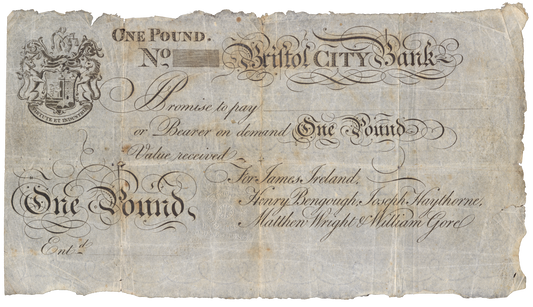 ONE POUND.
No
Bristol CITY Bank
VIRTUTE ET INDUSTRIA
Promise to pay
or Bearer on demand One Pound
Value received
For James Ireland,
Henry Bengough, Joseph Haythorne,
Matthew Wright & William Gore
One Pound,
Ent.d